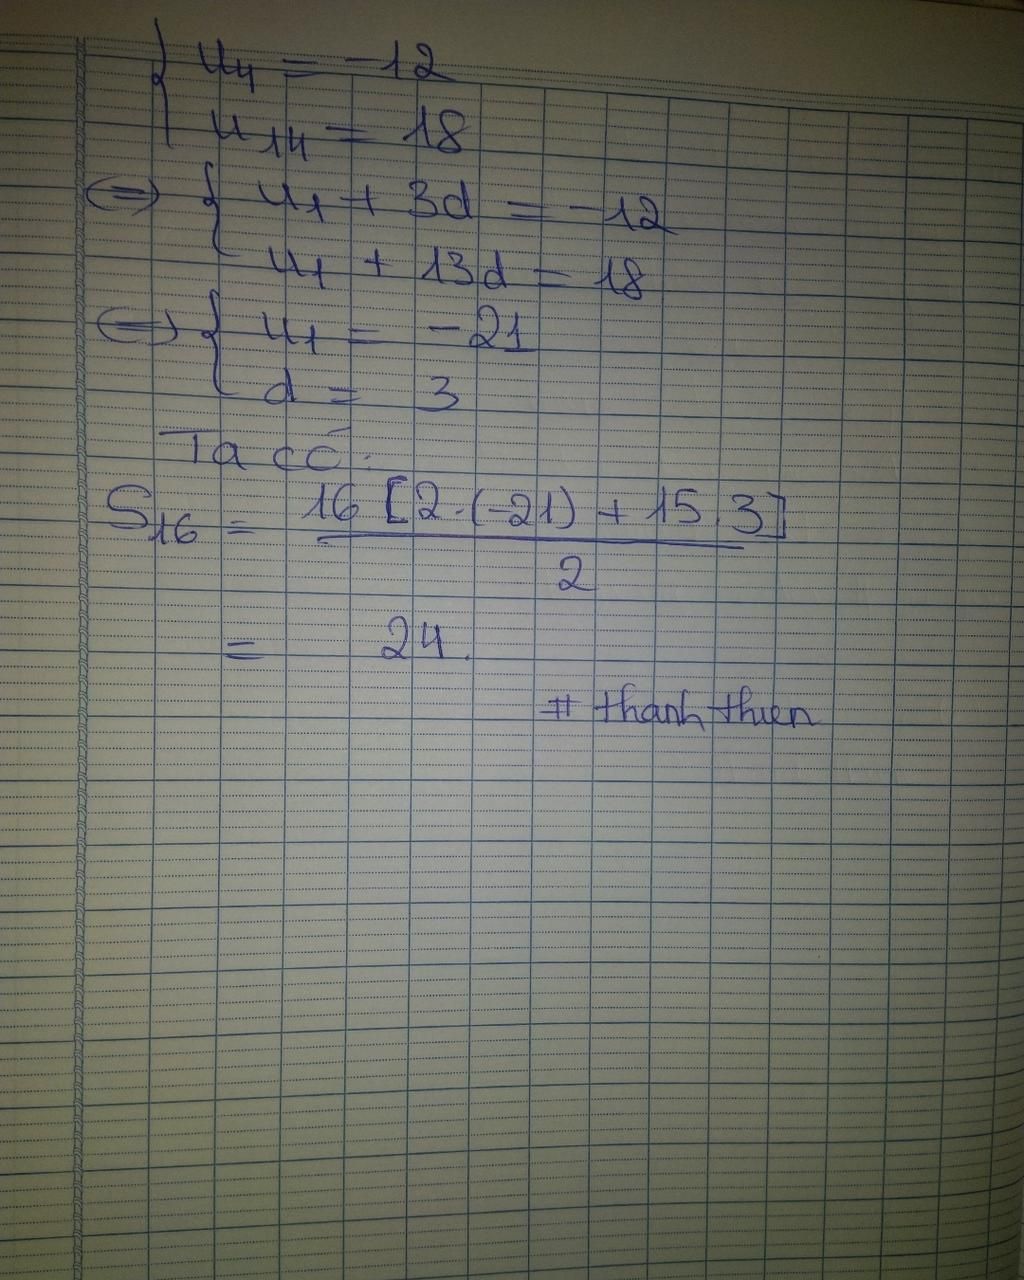 { u4 = -12
u14 = 18
<=> { u1 + 3d = -12
u1 + 13d = 18
<=> { u1 = -21
d = 3
Ta có:
S16 = 16 [2.(-21) + 15.3]
2
= 24.
# thanh thien